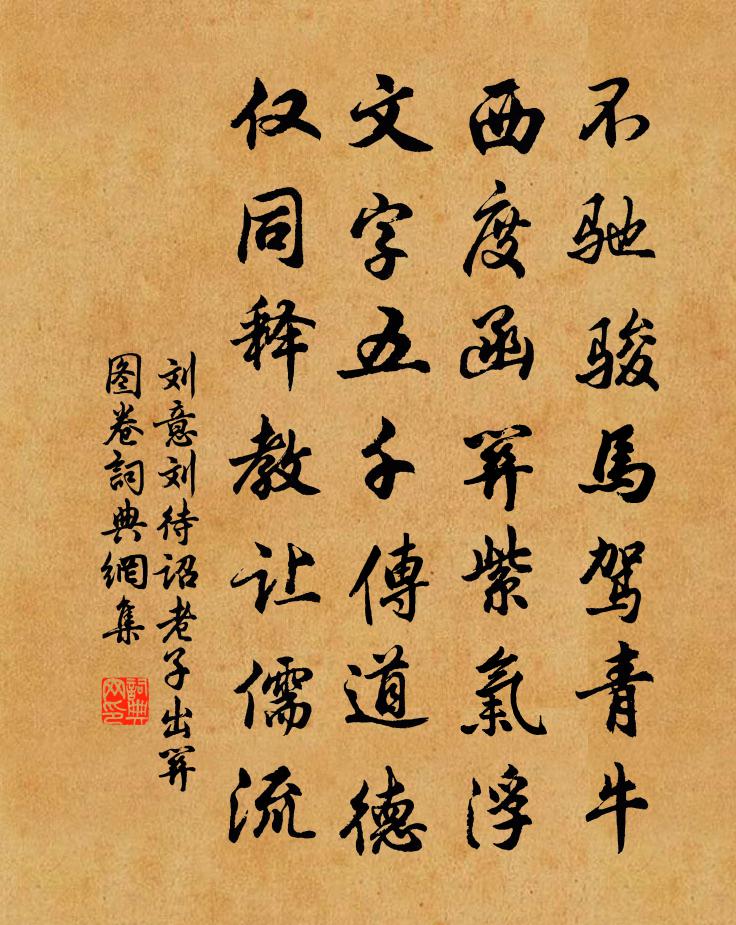 不驰骏馬驾青牛
西度函関紫氣浮
文字五千傳道德
仅同释教让儒流
刘意刘待诏老子出関
图卷詞典網集
詞典网印